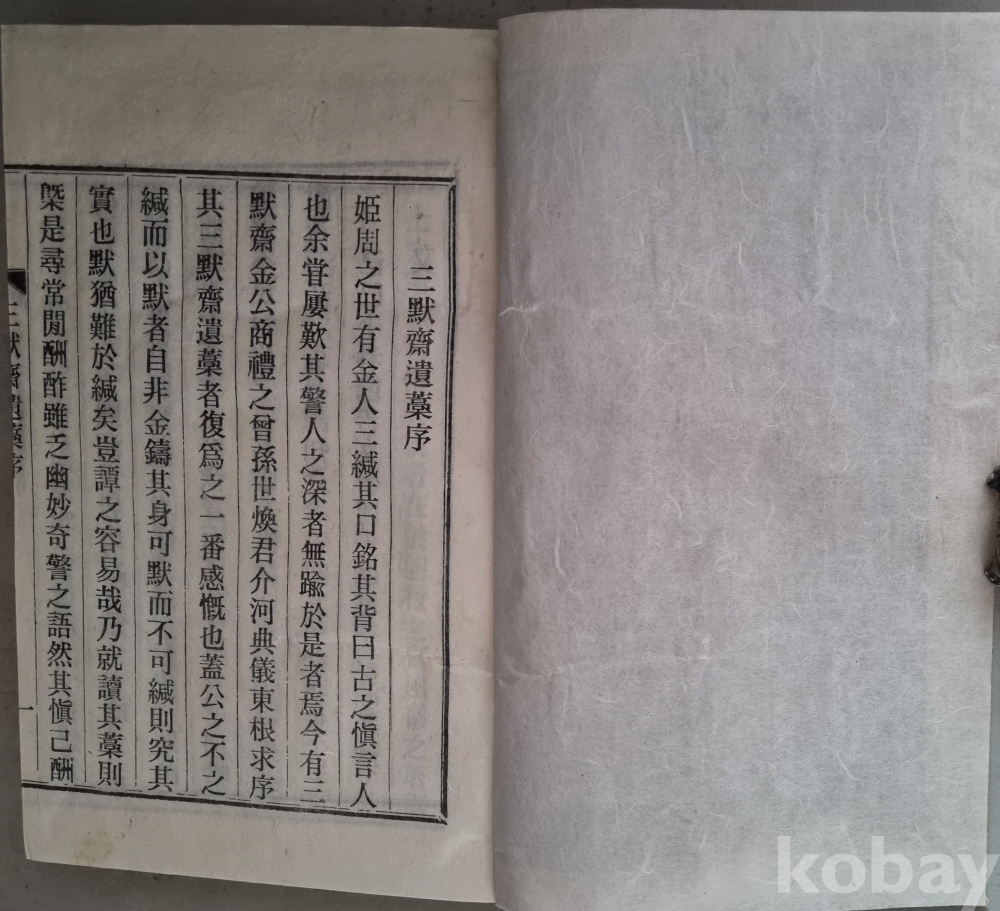 三默齋遺藁序
姫周之世有金人三緘其口銘其背曰古之愼言人
也余甞屢歎其警人之深者無踰於是者焉今有三
默齋金公商禮之曾孫世煥君介河典儀東根求序
其三默齋遺藁者復爲之一番感慨也蓋公之不之
緘而以默者自非金鑄其身可默而不可緘則究其
實也默猶難於緘矣豈譚之容易哉乃就讀其藁則
槩是尋常閒酬酢雖乏幽妙奇警之語然其愼己酬
三默齋遺藁序
一
kobay